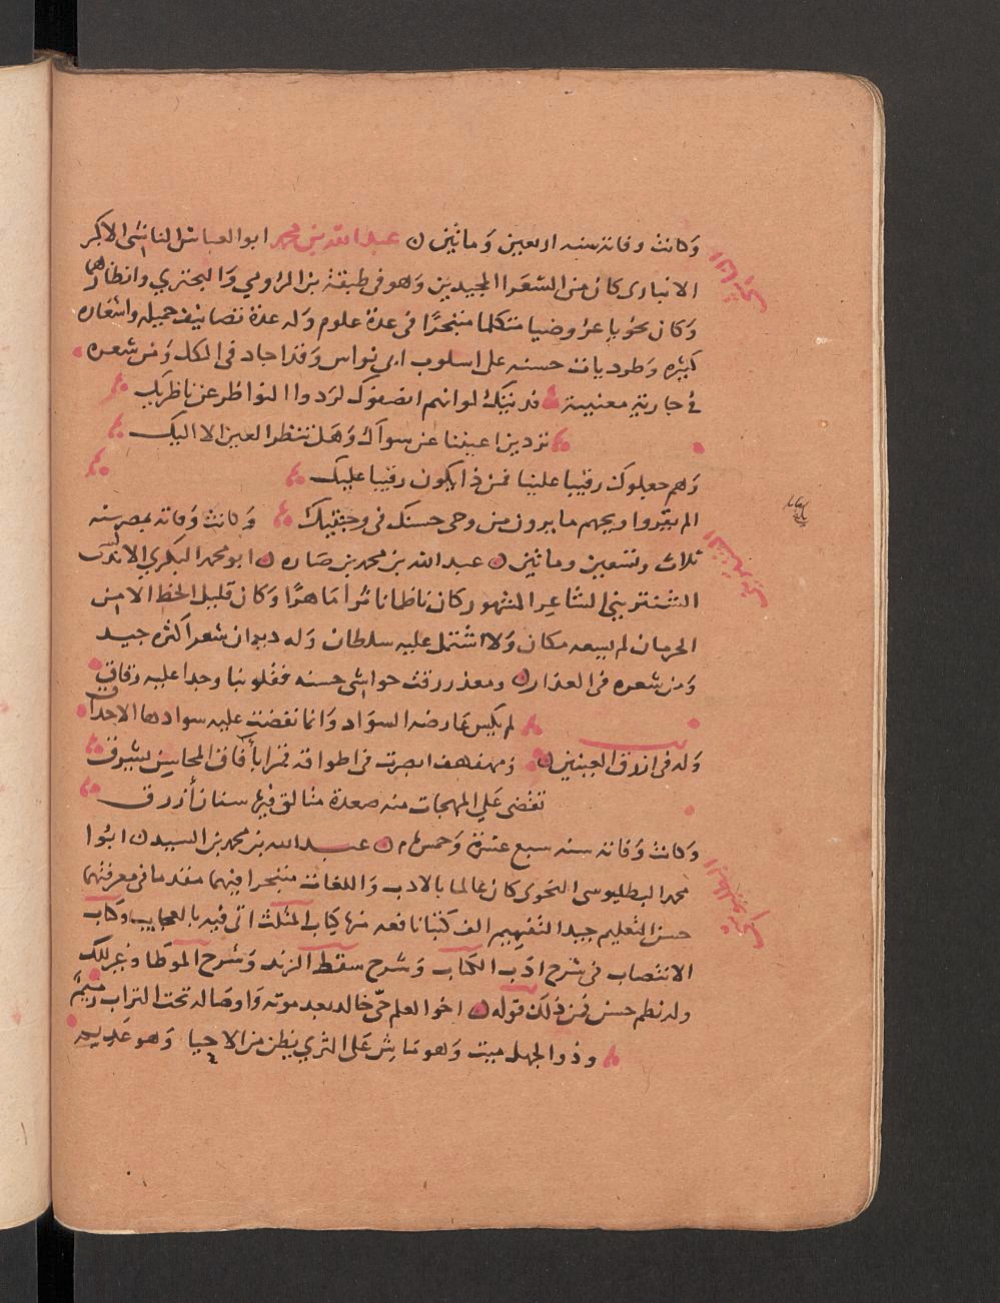 وكانت وفاته سنه اربعين ومائتين ن عبد الله بن محمد ابو العباس الناشى الاكبر
الانبارى كان من الشعرا المجيدين وهو فى طبقة بن الرومي والبحتري وانظارهما
وكان نحويا عروضيا متكلما متبحرًا فى عدة علوم وله عدة تصانيف جميله واشعاره
كثيره وطرديات حسنه على اسلوب ابى نواس وقد اجاد فى الكل ومن شعره
فى جارية مغنيية فديتك لوانهم انصفوك لردوا النواظر عن ناظريك
تردين اعيننا عن سواك وهل تنظر العين الا اليك
وهم جعلوك رقيبا علينا فمن ذا يكون رقيبا عليك
الم يقروا ويحهم ما يرون من وحى حسنك فى وجنتيك وكانت وفاته بمصر سنه
ثلاث وتسعين ومائتين ن عبد الله بن محمد بن صاره ن ابو محمد البكري الاندلسى
الشنترينى الشاعر المشهور كان ناظما ناثرا ماهرًا وكان قليل الحظ الا من
الحرمان لم يسعه مكان ولا اشتمل عليه سلطان وله ديوان شعر اكثره جيد
ومن شعره فى العذار ومعذر رقت حواشى حسنه فقلوبنا وجدا عليه رقاق
لم يكس عارضه السواد وانما نفضت عليه سوادها الاحداق
وله فى ازرق العينين ومهفهف ابصرت فى اطواقه قمرا بأفاق المحاسن يشرق
تقضى على المهجات منه صعدة متالق فيها سنان أزرق
وكانت وفاته سنه سبع عشرة وخمس م ن عبد الله بن محمد بن السيد ن ابوا
محمد البطليوسى النحوى كان عالما بالادب واللغات متبحرا فيهما مقدما فى معرفتهما
حسن التعليم جيد التفهيم الف كتبا نافعه منها كتاب المثلث اتى فيه بالعجايب وكتاب
الانتصاب فى شرح ادب الكتاب وشرح سقط الزند وشرح الموطا وغير ذلك
وله نظم حسن فمن ذلك قوله اخو العلم حى خالد بعد موته واوصاله تحت التراب رميم
وذو الجهل ميت وهو ماش على الثري يظن من الاحيا وهو عديم